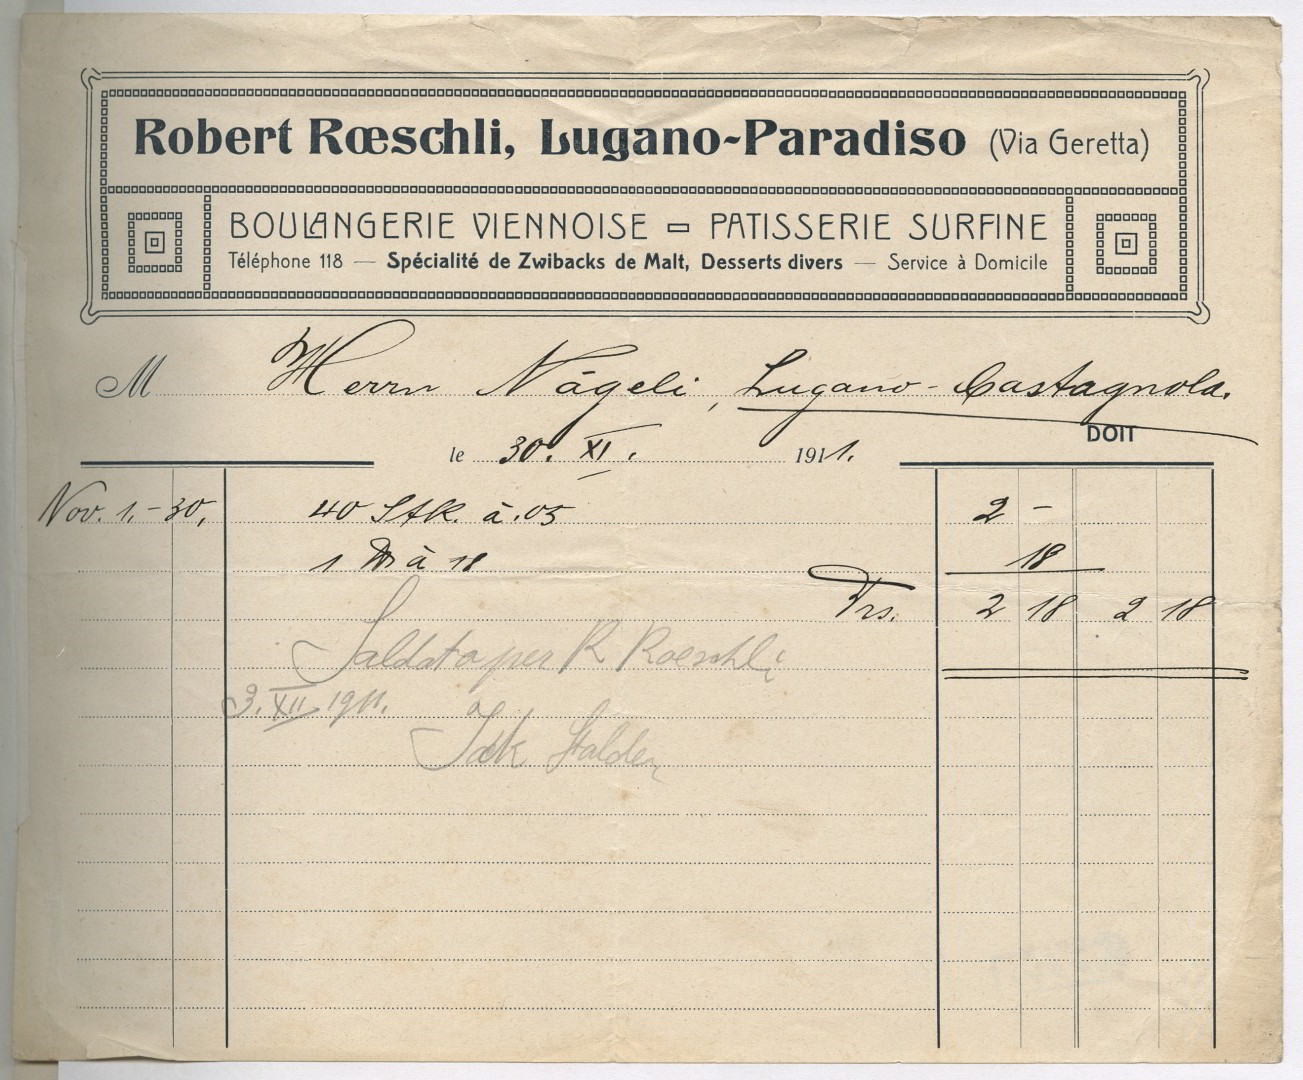 Robert Rœschli, Lugano-Paradiso (Via Geretta)
BOULANGERIE VIENNOISE = PATISSERIE SURFINE
Téléphone 118 — Spécialité de Zwibacks de Malt, Desserts divers — Service à Domicile
M Herrn Nägeli, Lugano-Castagnola.
DOIT
le 30. XI. 1911.
Nov. 1.-30. 40 Stk. à .05 2 -
1 à 18 18
Frs. 2 18 2 18
Saldato per R Roeschli
3. XII 1911.
Stalder